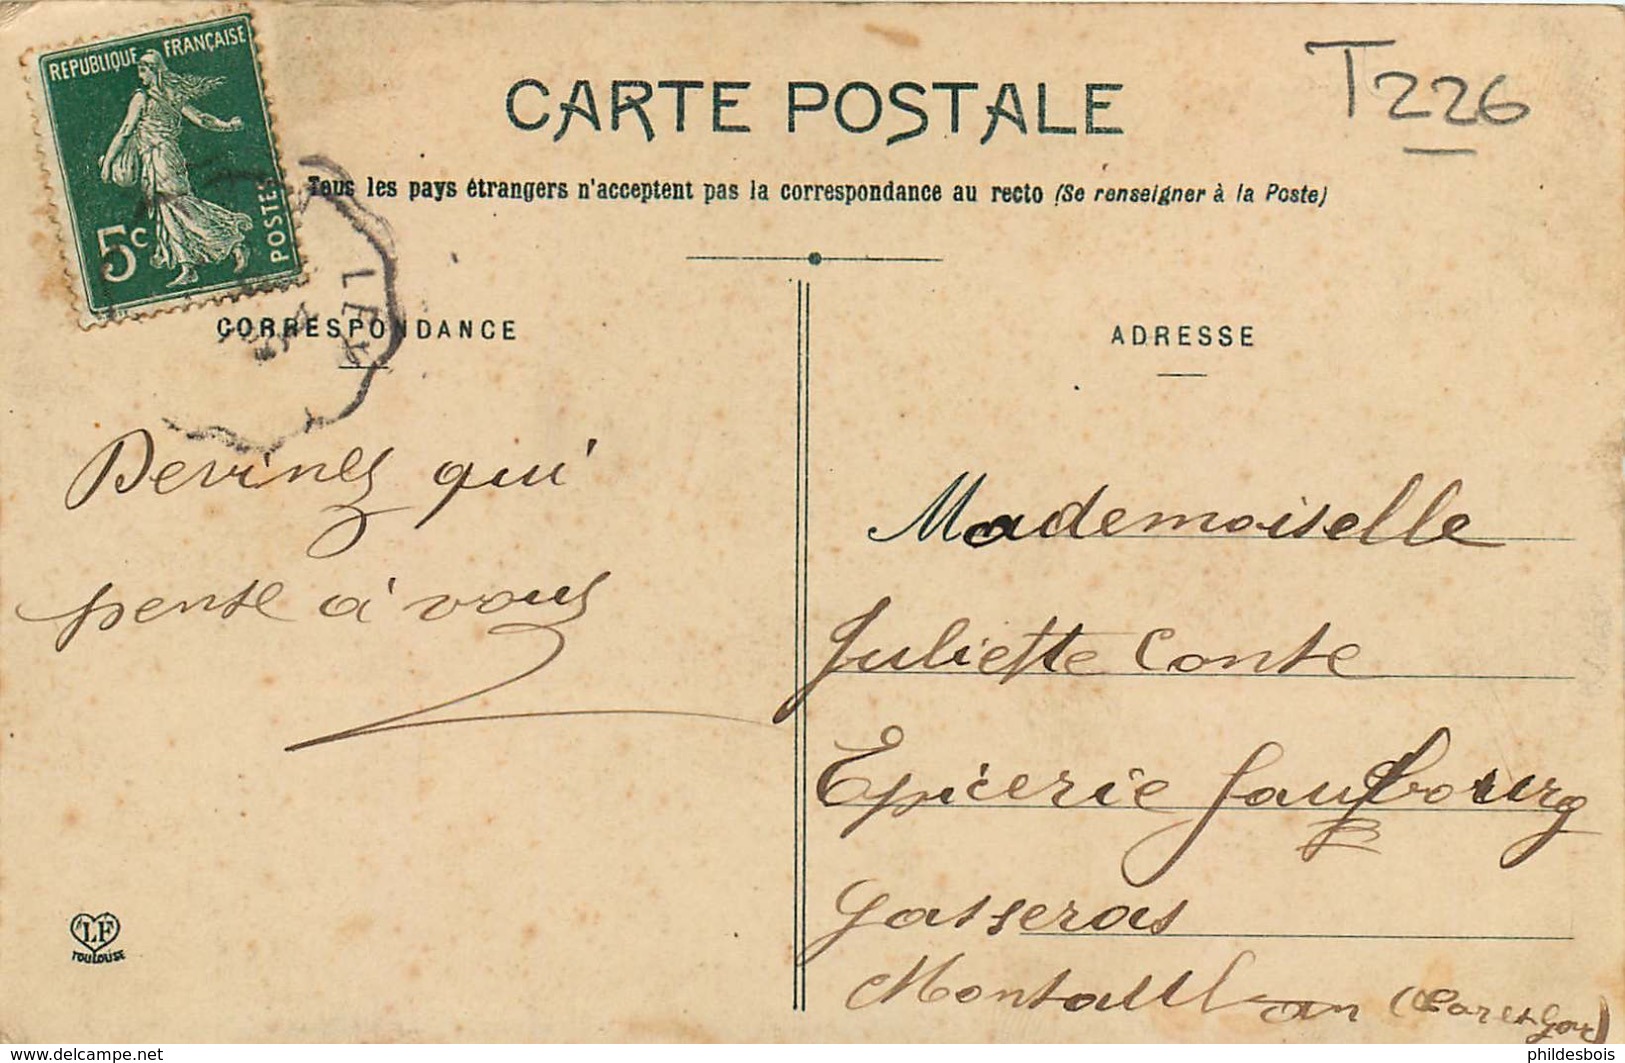 REPUBLIQUE FRANÇAISE
5c
POSTES
CARTE POSTALE
T226
Tous les pays étrangers n'acceptent pas la correspondance au recto (Se renseigner à la Poste)
CORRESPONDANCE
Devinez qui
pense à vous
LF
TOULOUSE
ADRESSE
Mademoiselle
Juliette Conte
Epicerie Faubourg
Gasseras
Montauban (Tar et Gar)
phildesbois
www.delcampe.net